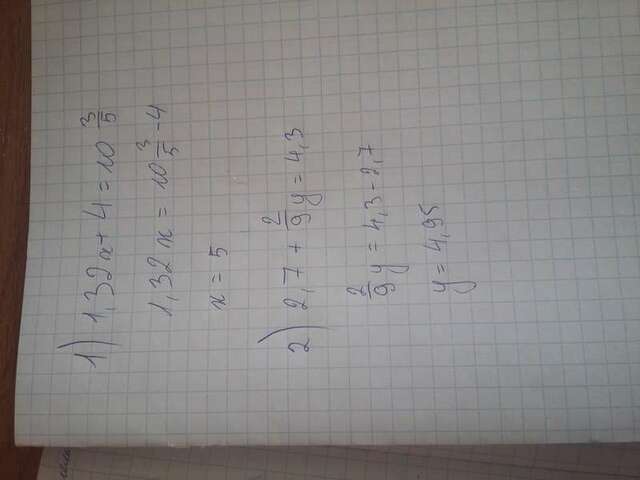 1) 1,32x + 4 = 10 3/5
1,32x = 10 3/5 - 4
x = 5
2) 2,7 + 2/9 y = 4,3
2/9 y = 4,3 - 2,7
y = 4,95